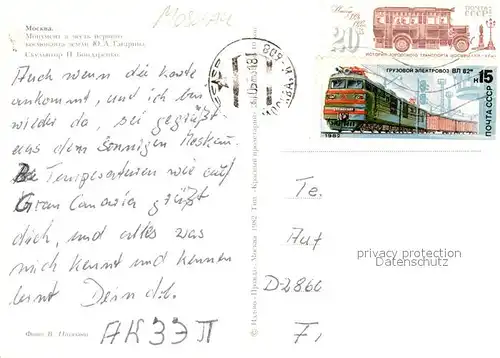 Москва.
Монумент в честь первого
космонавта земли Ю.А. Гагарина.
Скульптор П. Бондаренко.
Auch wenn die Karte
ankommt, und ich bin
wieder da, sei gegrüßt
aus dem sonnigen Moskau.
Temperaturen wie auf
Gran Canaria grüßt
dich, und alles was
mich kennt und kennen
lernt Dein
Фото В.
АК ЭЭ П
Москва 1982 Тип.
20
ПОЧТА СССР
ИСТОРИЯ ГОРОДСКОГО ТРАНСПОРТА
ГРУЗОВОЙ ЭЛЕКТРОВОЗ ВЛ 82м
15
ПОЧТА СССР
1982
МОСКВА
Te.
Auf
privacy protection
Datenschutz
D-2860